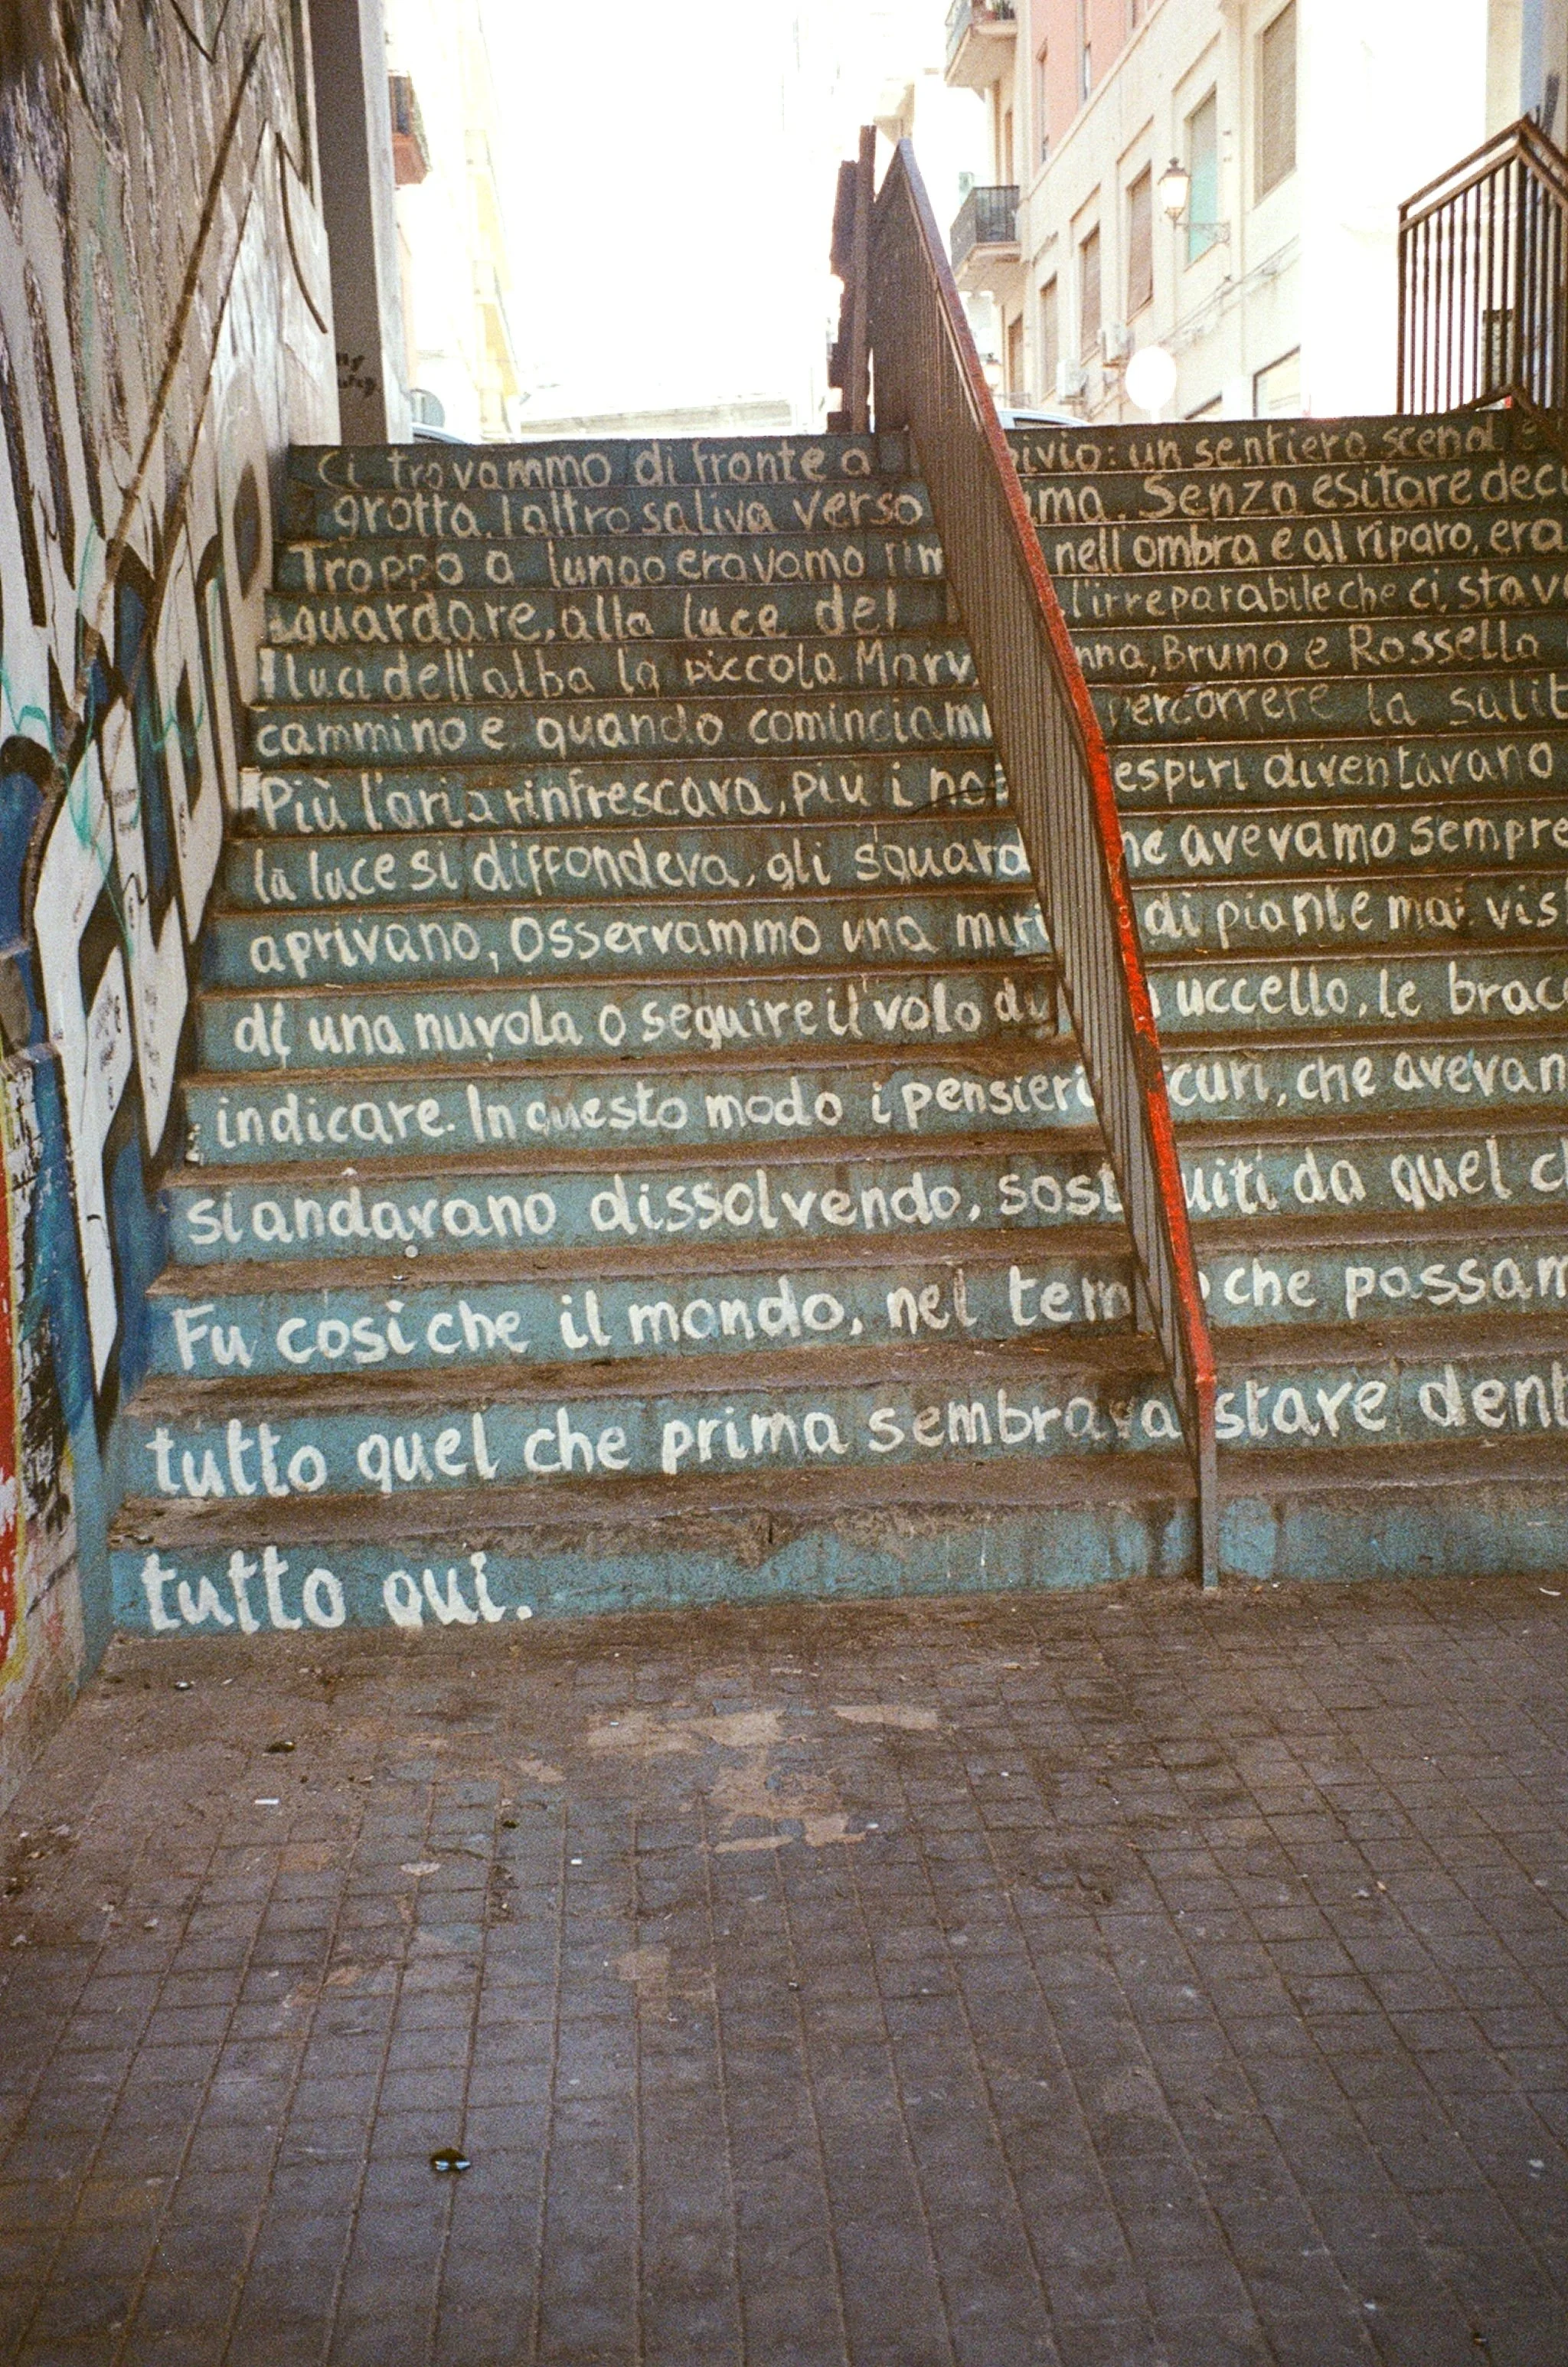 Ci trovammo di fronte a bivio: un sentiero scend
grotta, l'altro saliva verso ima. Senza esitare dec
Troppo a lungo eravamo rim nell'ombra e al riparo, era
guardare, alla luce del l'irreparabile che ci stav
luci dell'alba la piccola Mary nna, Bruno e Rossella
cammino e quando cominciam percorrere la salit
Più l'aria rinfrescava, più i nos espiri diventavano
la luce si diffondeva, gli sguard che avevamo sempre
aprivano, Osservammo una miri di piante mai vis
di una nuvola o seguire il volo di uccello, le bracc
indicare. In questo modo i pensieri scuri, che avevam
si andavano dissolvendo, sostituiti da quel ch
Fu così che il mondo, nel tempo che passam
tutto quel che prima sembrava stare dent
tutto qui.